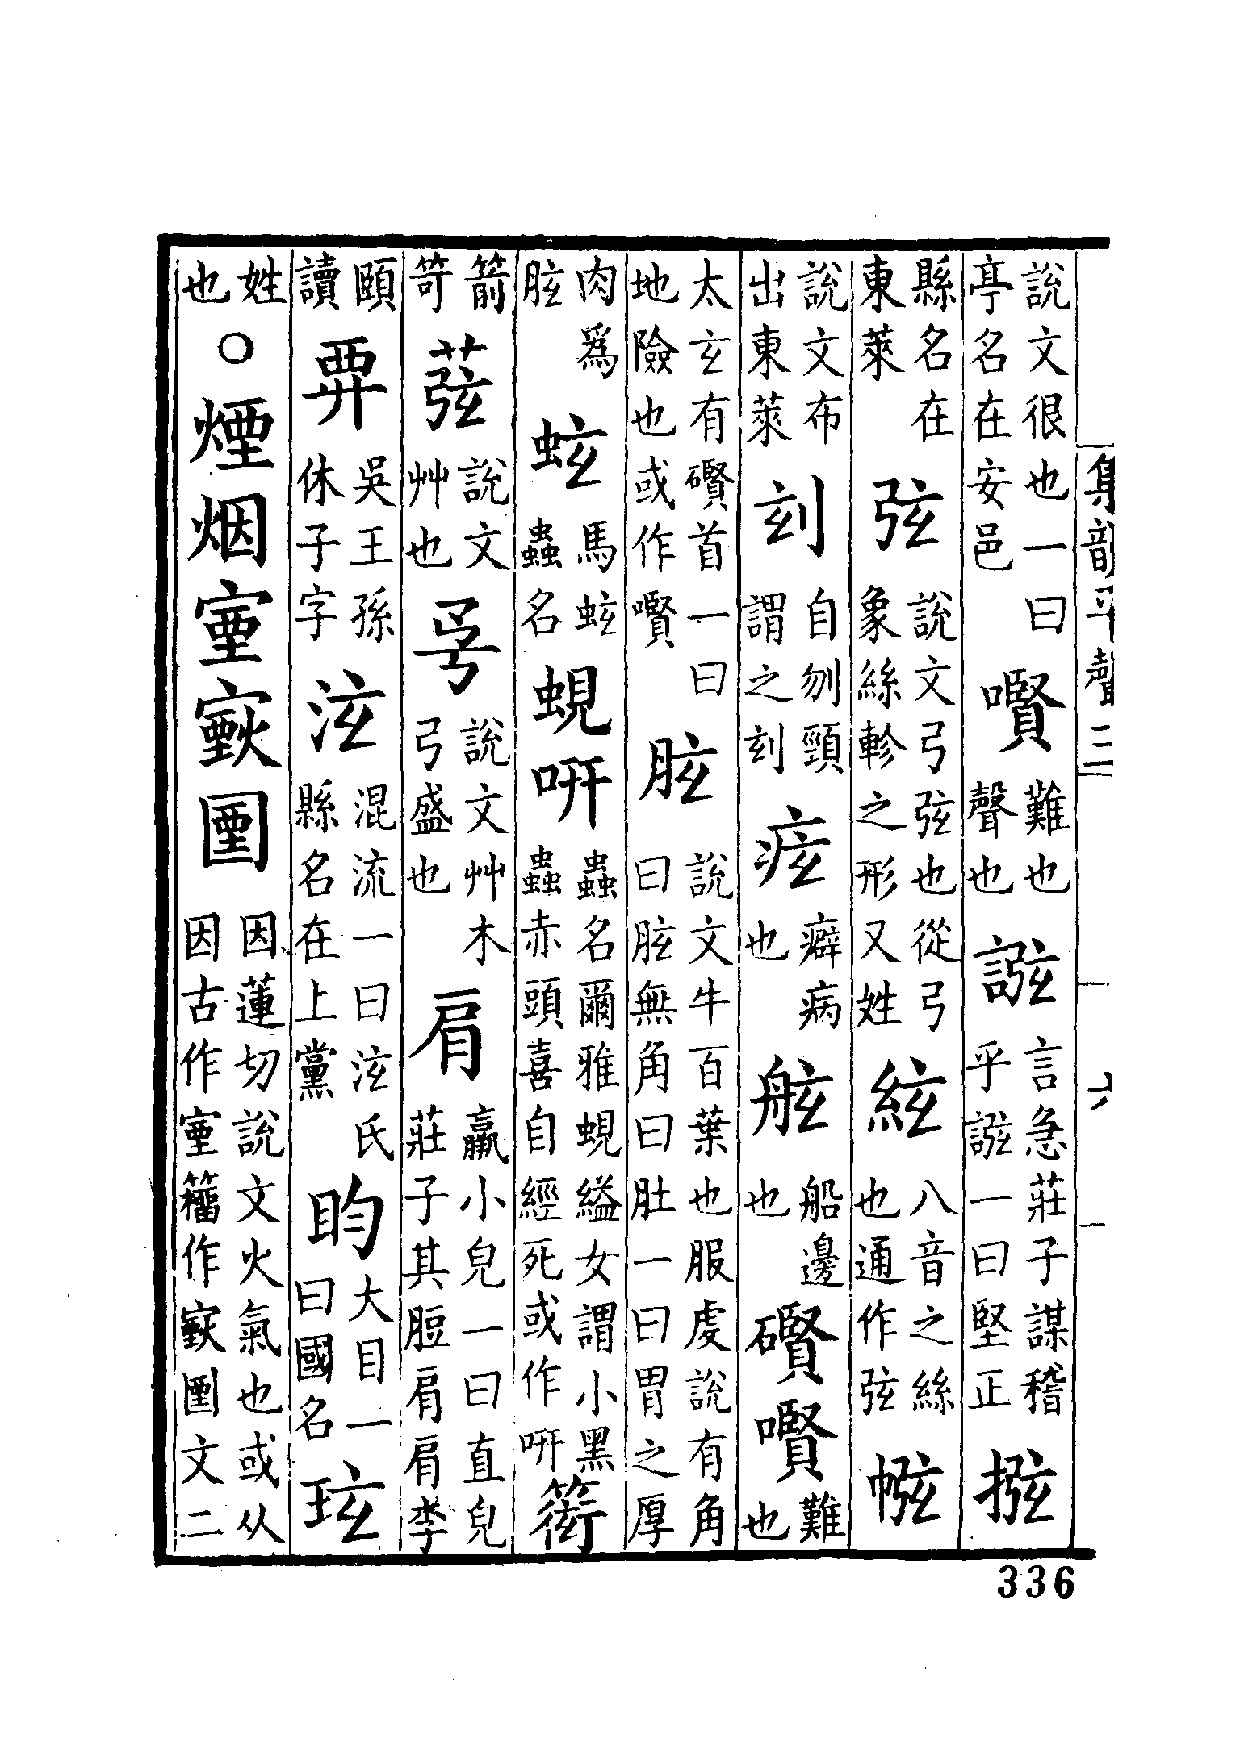 集韻平聲三 六
說文很也一曰亭名在安邑 㘋 難也聲也 誸 言急莊子謀稽乎誸一曰堅正
縣名在東萊 弦 說文弓弦也從弓象絲軫之形又姓 絃 八音之絲也通作弦 㡉
說文布出東萊 自刎頸謂之 痃 癖病也 舷 船邊也 礥㘋 難也
太玄有礥首一曰地險也或作㘋 胘 說文牛百葉也服虔說有角曰胘無角曰肚一曰胃之厚
肉爲胘 蚿 馬蚿蟲名 蜆 蟲名爾雅蜆縊女謂小黑蟲赤頭喜自經死或作
箭笴 說文艸也 說文艸木弓盛也 肩 羸小皃一曰直皃莊子其脰肩肩李
頤讀 吳王孫休子字 泫 混流一曰泫氏縣名在上黨 盷 大目一曰國名 玹
姓也○煙烟 因蓮切說文火氣也或从因古作籀作文二
336